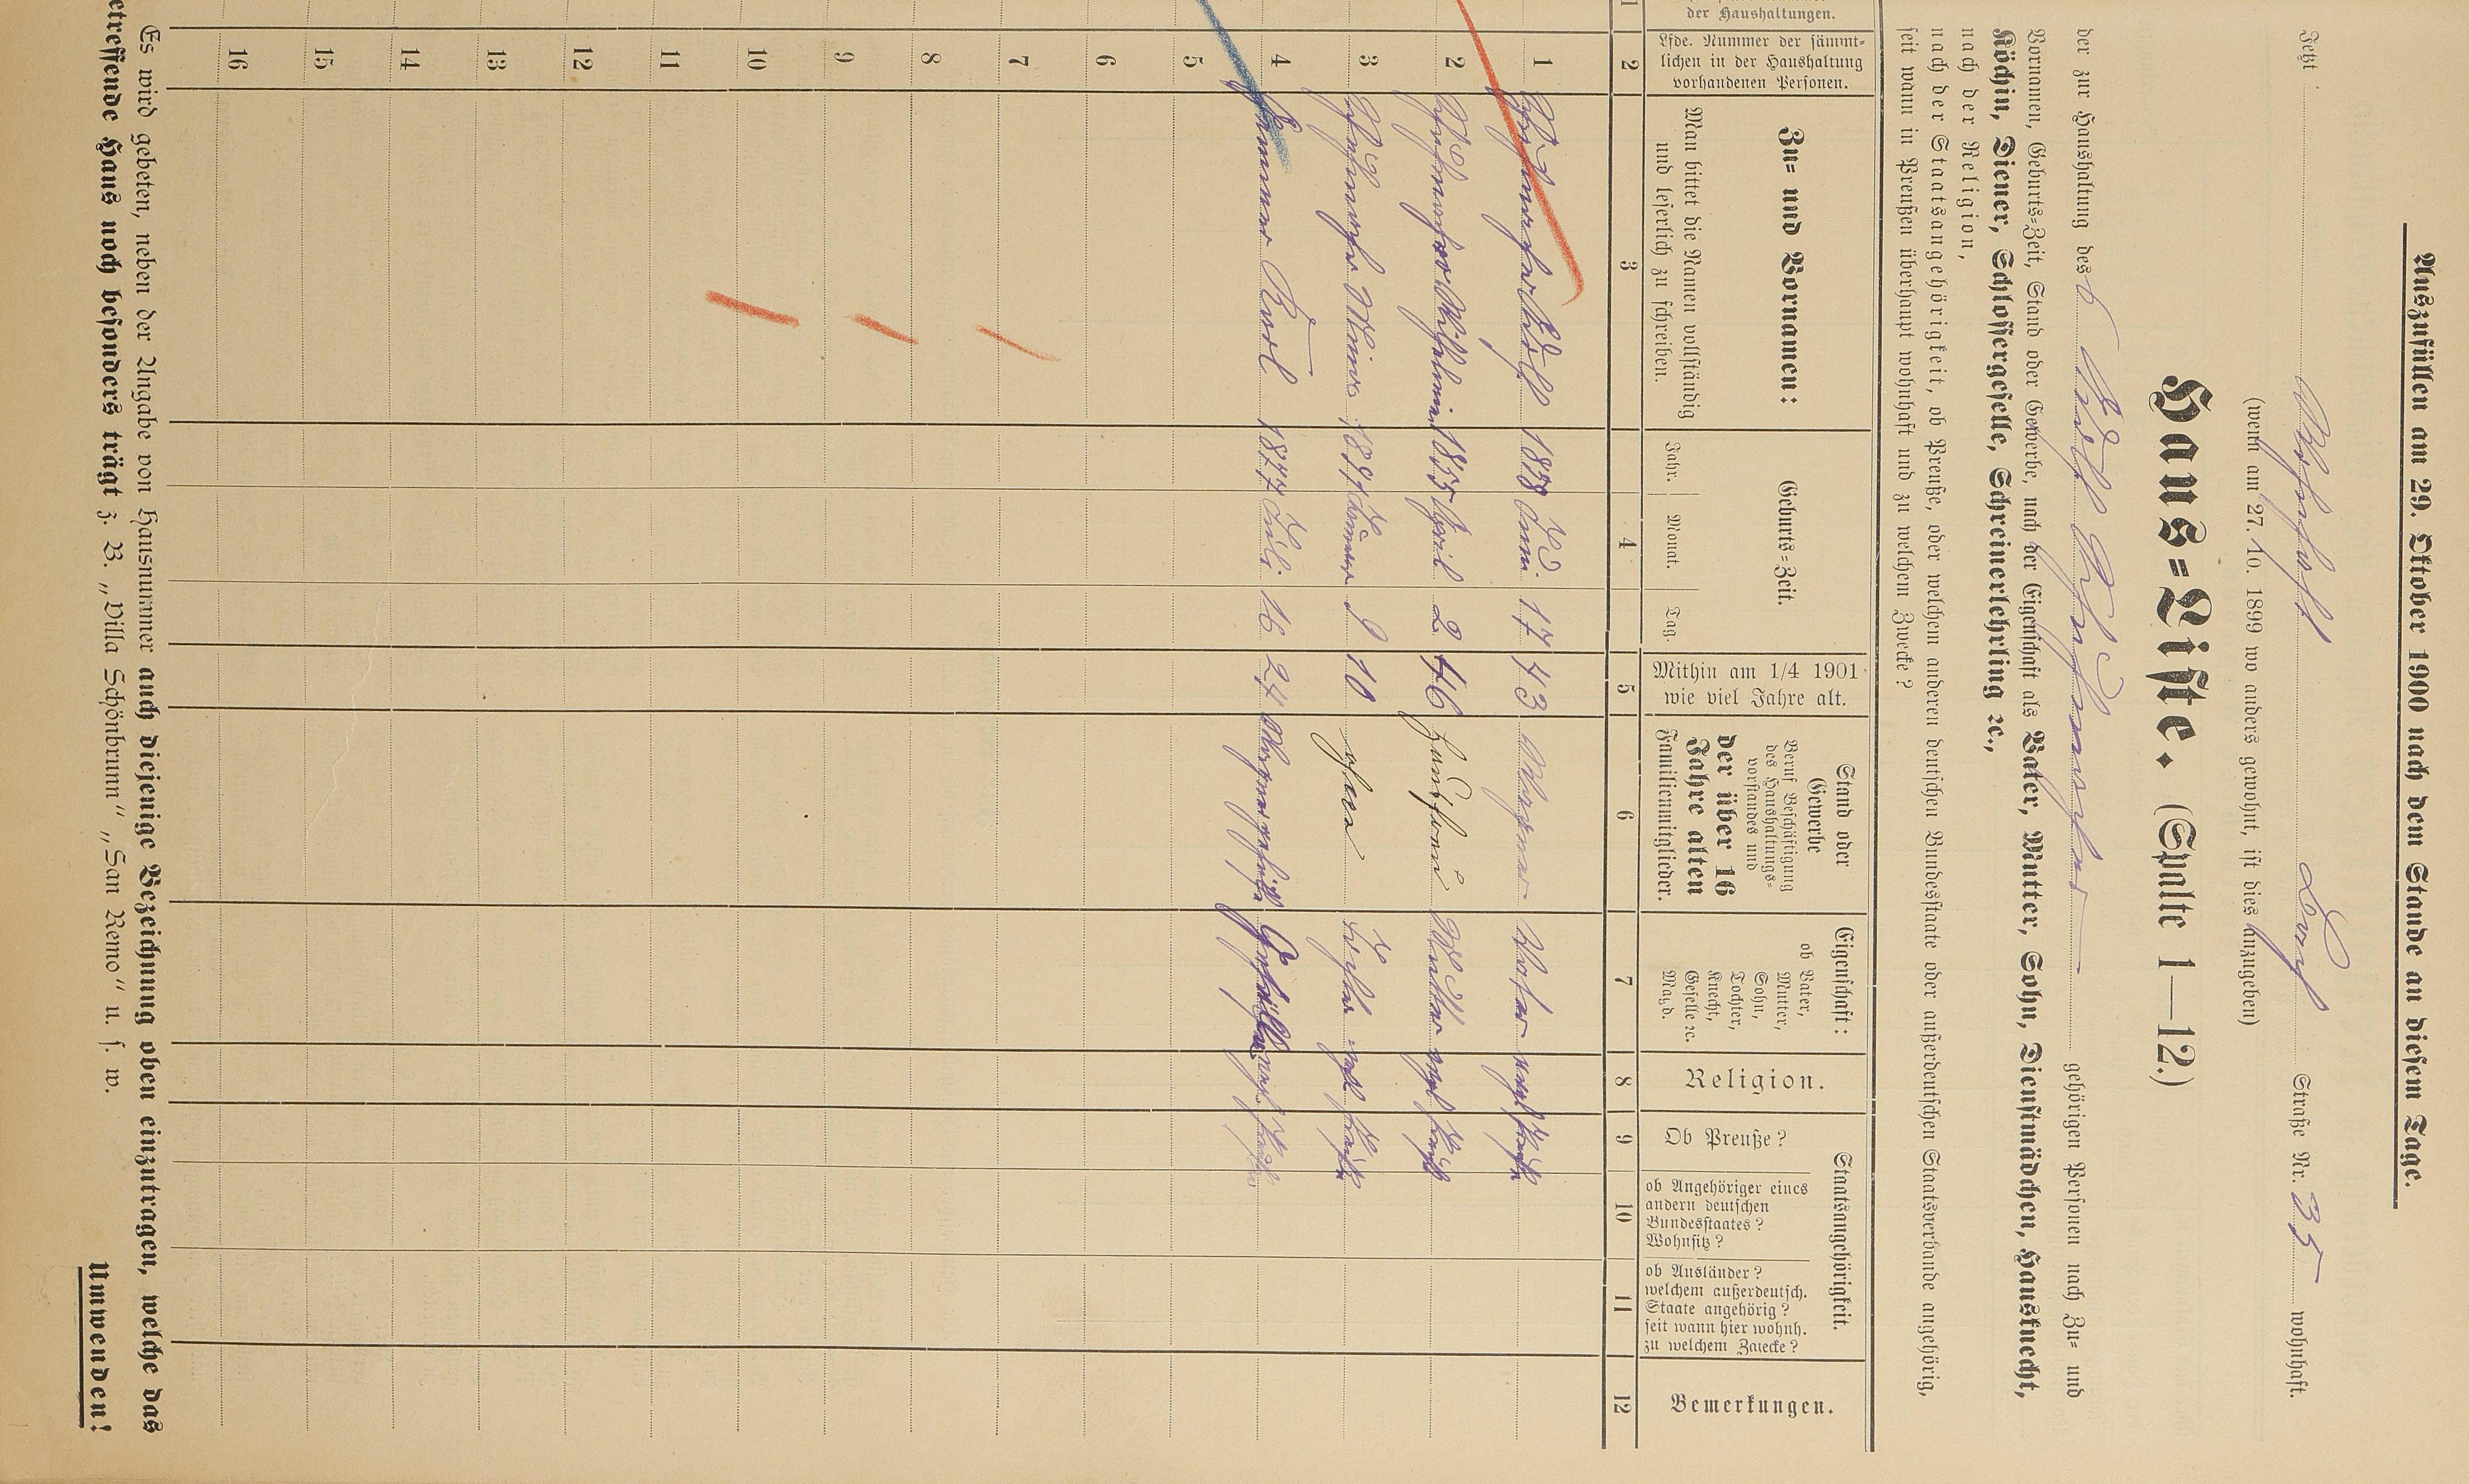 Auszufüllen am 29. Oktober 1900 nach dem Stande an diesem Tage.
Jetzt Straße Nr. 35 wohnhaft.
(wenn am 27. 10. 1899 wo anders gewohnt, ist dies anzugeben)
Haus=Liste. (Spalte 1—12.)
der zur Haushaltung des Adolf gehörigen Personen nach Zu= und
Vornamen, Geburts=Zeit, Stand oder Gewerbe, nach der Eigenschaft als Vater, Mutter, Sohn, Dienstmädchen, Hausknecht,
Köchin, Diener, Schlossergeselle, Schreinerlehrling ꝛc.,
nach der Religion,
nach der Staatsangehörigkeit, ob Preuße, oder welchem anderen deutschen Bundesstaate oder außerdeutschen Staatsverbande angehörig,
seit wann in Preußen überhaupt wohnhaft und zu welchem Zwecke?
der Haushaltungen.
Lfde. Nummer der sämmt=
lichen in der Haushaltung
vorhandenen Personen.
Zu= und Vornamen:
Man bittet die Namen vollständig
und leserlich zu schreiben.
Geburts=Zeit.
Jahr. Monat. Tag.
Mithin am 1/4 1901
wie viel Jahre alt.
Stand oder
Gewerbe
Beruf Beschäftigung
des Haushaltungs=
vorstandes und
der über 16
Jahre alten
Familienmitglieder.
Eigenschaft:
ob Vater,
Mutter,
Sohn,
Tochter,
Knecht,
Geselle ꝛc.
Magd.
Religion.
Staatsangehörigkeit.
Ob Preuße?
ob Angehöriger eines
andern deutschen
Bundesstaates?
Wohnsitz?
ob Ausländer?
welchem außerdeutsch.
Staate angehörig?
seit wann hier wohnh.
zu welchem Zwecke?
Bemerkungen.
1 2 3 4 5 6 7 8 9 10 11 12
1 Adolf 1858 Juni 17 43 Wagner Vater evgl Preuße
2 Wilhelmine 1855 April 2 46 Hausfrau Mutter evgl Preuß
3 Mina 9 10 ohne Tochter evgl Preuße
4 Karl 1877 Juli 16 24 Wagnergehilfe Gehülfe evgl. Preuße
5
6
7
8
9
10
11
12
13
14
15
16
Es wird gebeten, neben der Angabe von Hausnummer auch diejenige Bezeichnung oben einzutragen, welche das
etreffende Haus noch besonders trägt z. B. „Villa Schönbrunn“ „San Remo“ u. s. w.
Umwenden!